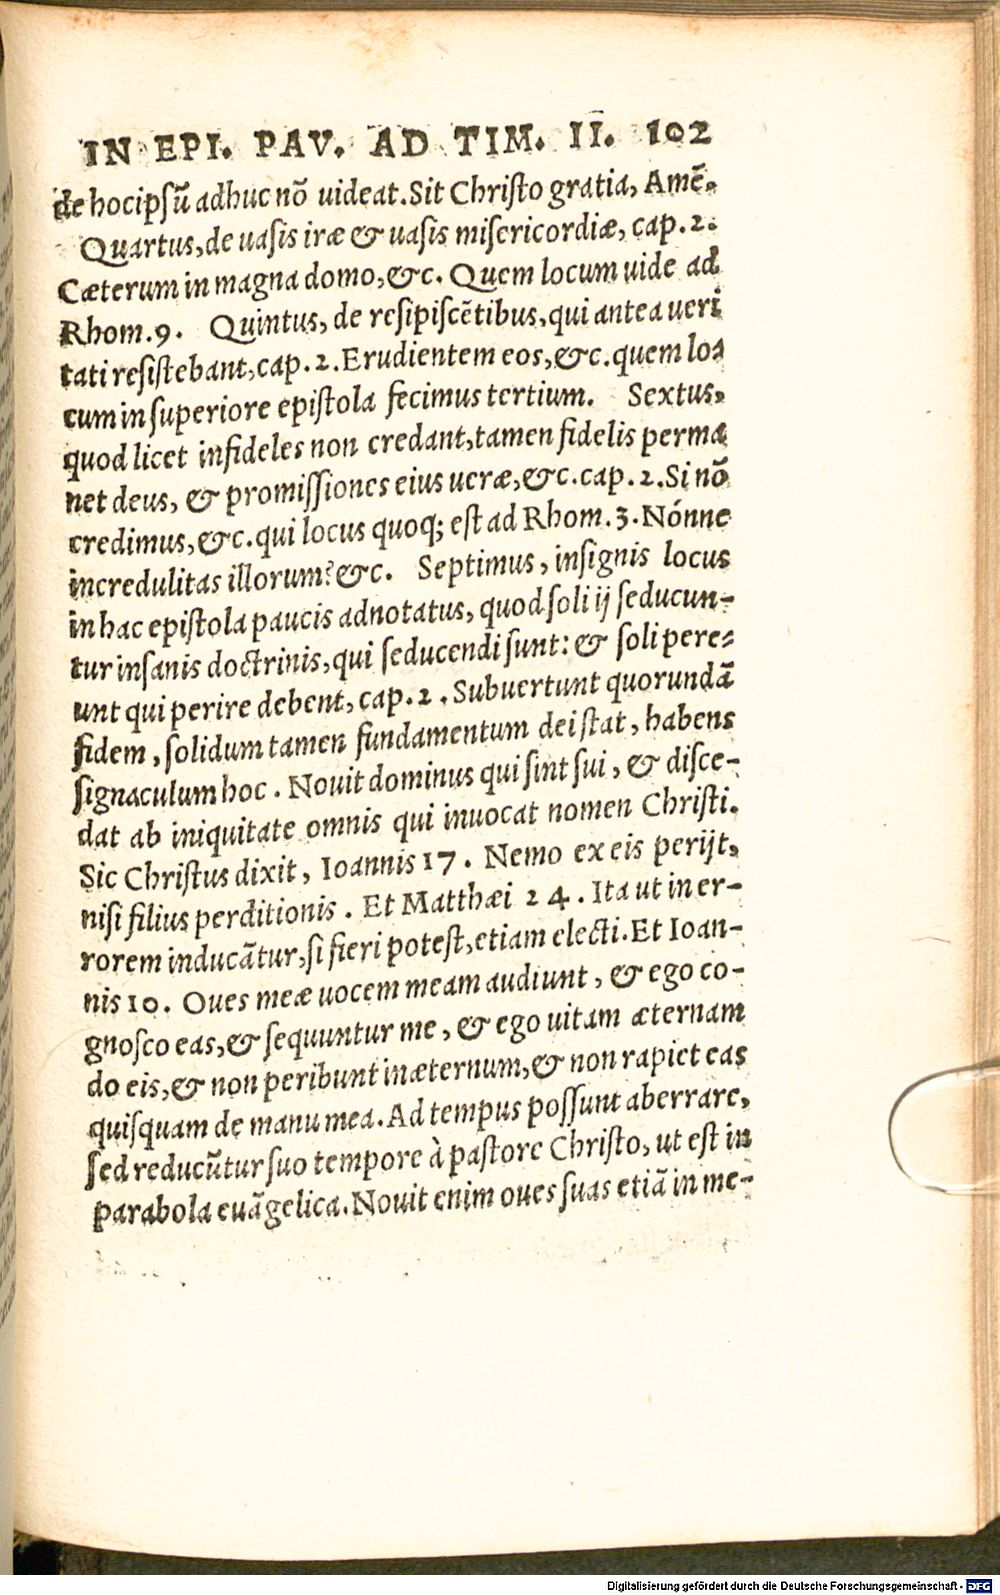 IN EPI. PAV. AD TIM. II. 102
de hoc ipsũ adhuc nõ uideat. Sit Christo gratia, Amẽ.
Quartus, de uasis iræ & uasis misericordiæ, cap. 2.
Cæterum in magna domo, &c. Quem locum uide ad
Rhom. 9. Quintus, de resipiscẽtibus, qui antea ueri
tati resistebant, cap. 2. Erudientem eos, &c. quem lo-
cum in superiore epistola fecimus tertium. Sextus,
quod licet infideles non credant, tamen fidelis perma
net deus, & promissiones eius ueræ, &c. cap. 2. Si nõ
credimus, &c. qui locus quoq; est ad Rhom. 3. Nónne
incredulitas illorum? &c. Septimus, insignis locus
in hac epistola paucis adnotatus, quod soli ij seducun-
tur insanis doctrinis, qui seducendi sunt: & soli pere-
unt qui perire debent, cap. 2. Subuertunt quorundã
fidem, solidum tamen fundamentum dei stat, habens
signaculum hoc. Nouit dominus qui sint sui, & disce-
dat ab iniquitate omnis qui inuocat nomen Christi.
Sic Christus dixit, Ioannis 17. Nemo ex eis perijt,
nisi filius perditionis. Et Matthæi 24. Ita ut in er-
rorem inducãtur, si fieri potest, etiam electi. Et Ioan-
nis 10. Oues meæ uocem meam audiunt, & ego co-
gnosco eas, & sequuntur me, & ego uitam æternam
do eis, & non peribunt in æternum, & non rapiet eas
quisquam de manu mea. Ad tempus possunt aberrare,
sed reducũtur suo tempore à pastore Christo, ut est in
parabola euãgelica. Nouit enim oues suas etiã in me-
Digitalisierung gefördert durch die Deutsche Forschungsgemeinschaft - DFG